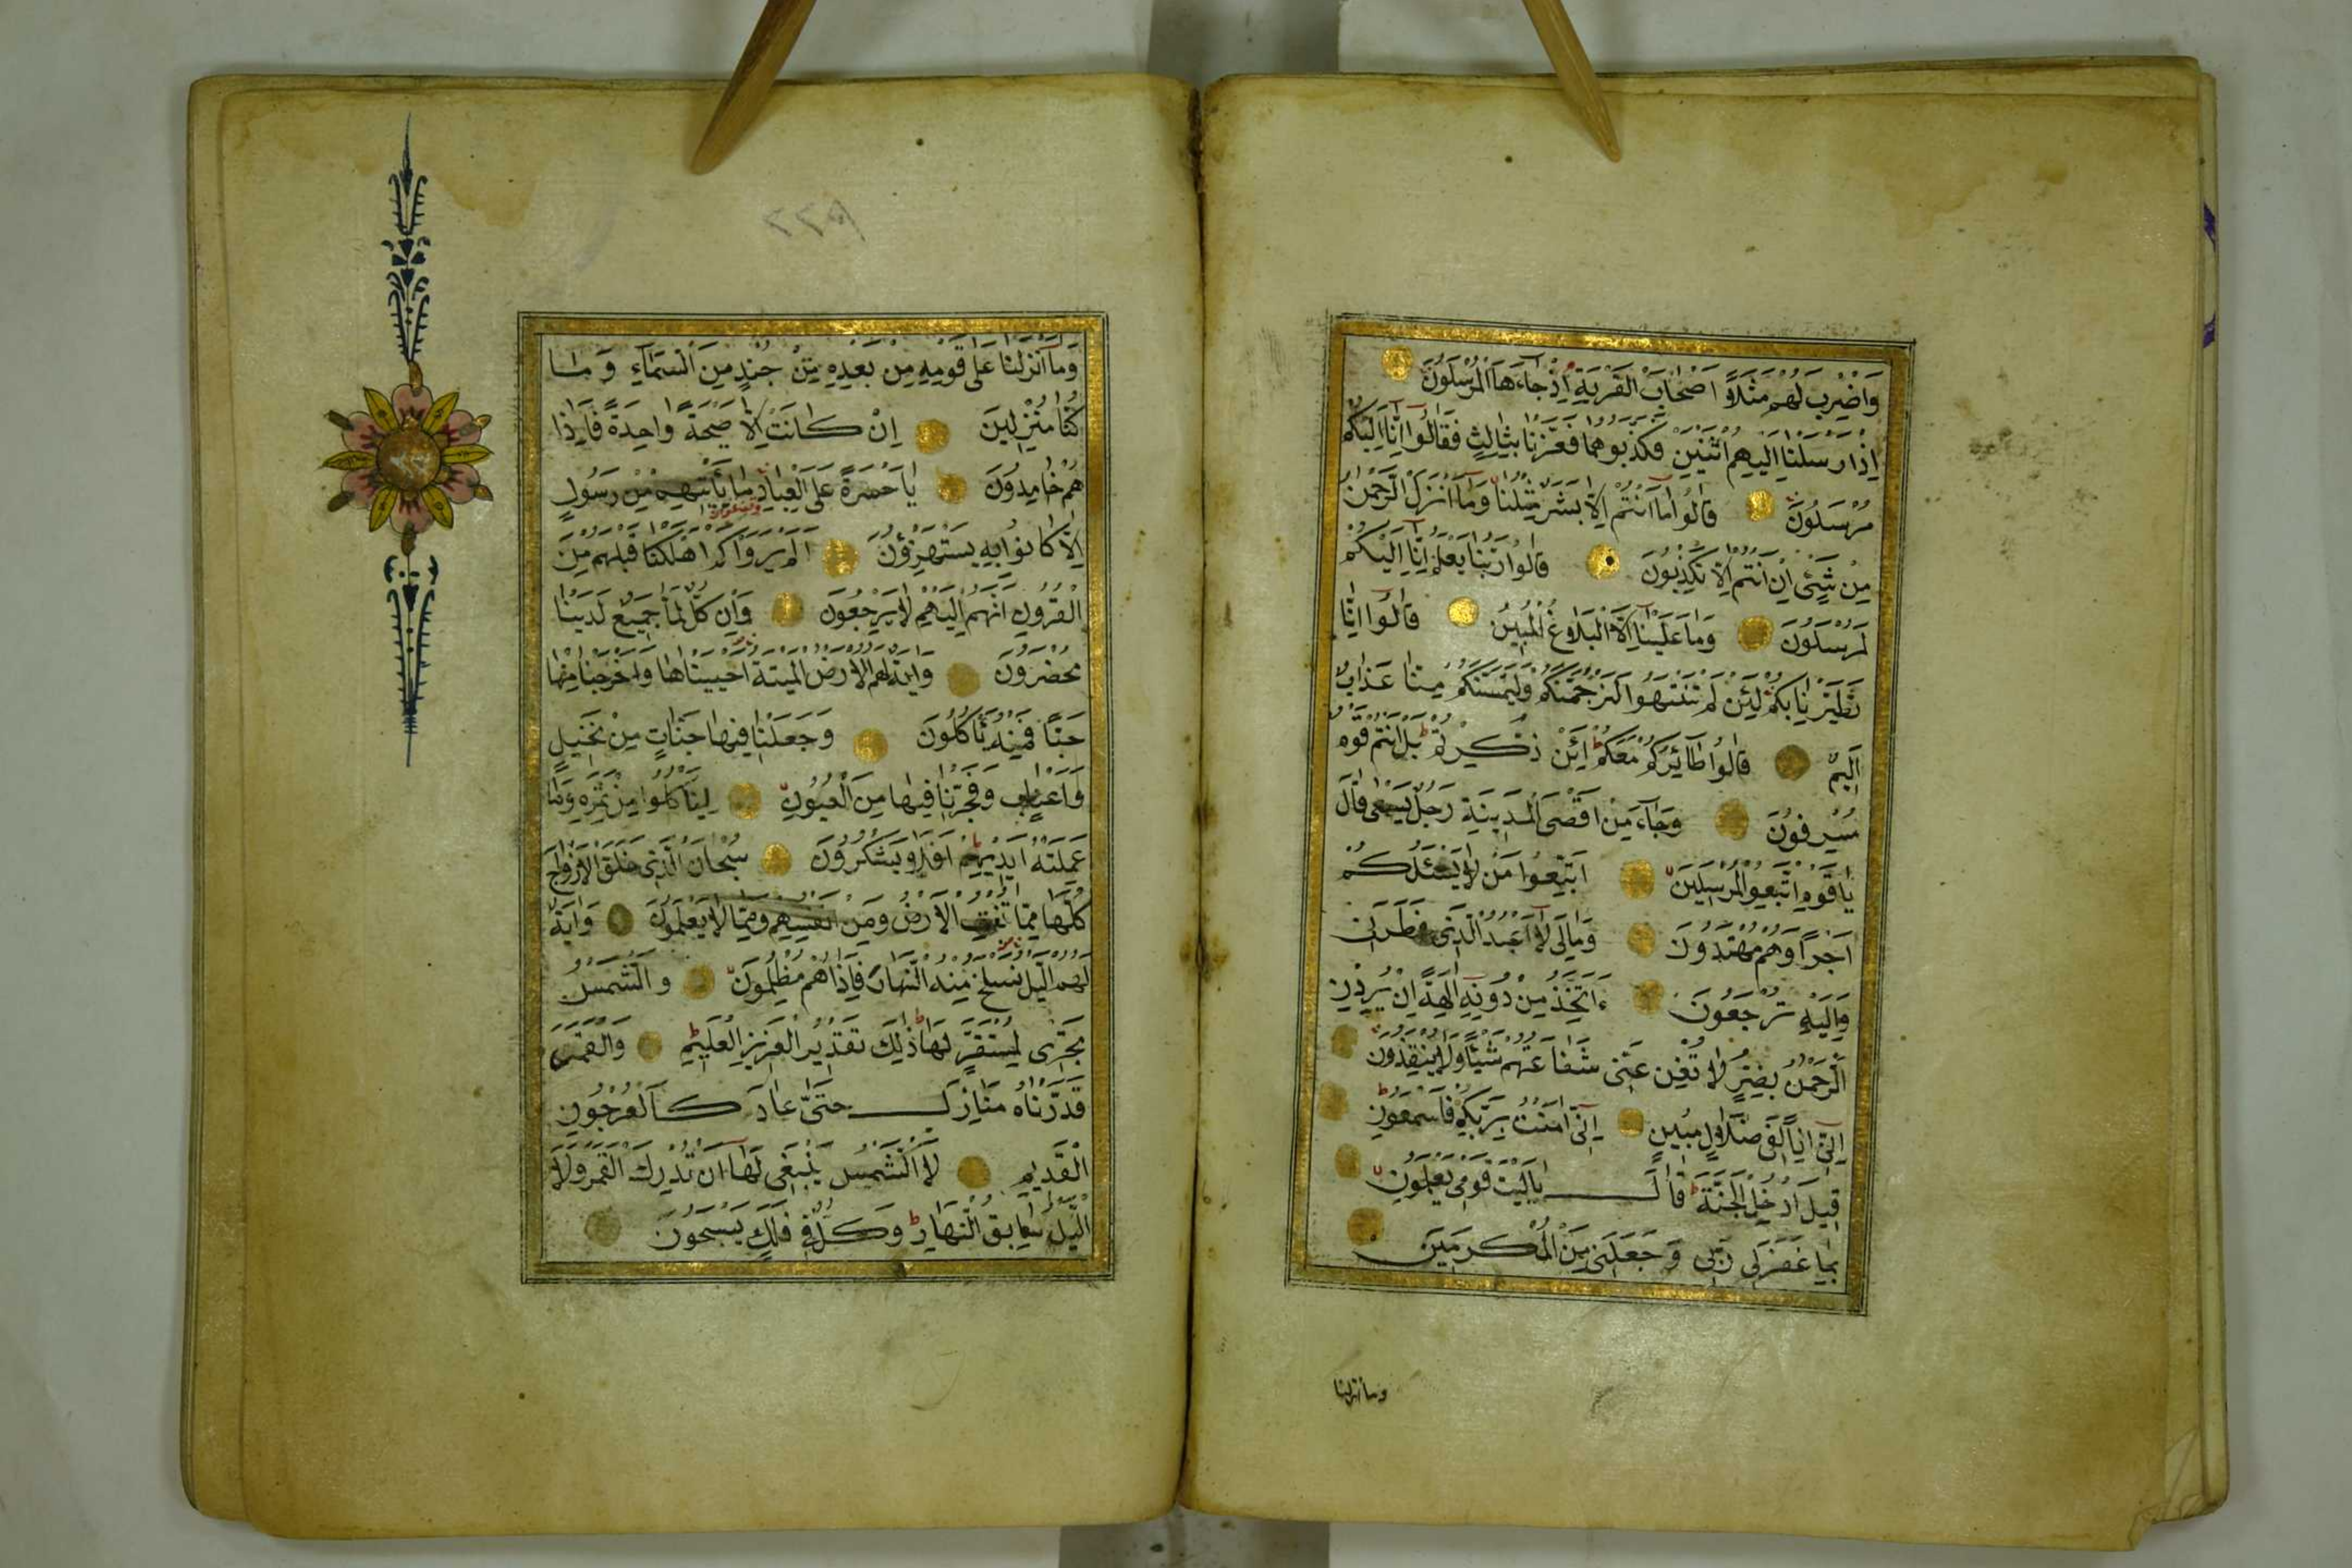 وَاضْرِبْ لَهُمْ مَثَلًا اَصْحَابَ الْقَرْيَةِ اِذْ جَاءَهَا الْمُرْسَلُونَ
اِذْ اَرْسَلْنَا اِلَيْهِمُ اثْنَيْنِ فَكَذَّبُوهُمَا فَعَزَّزْنَا بِثَالِثٍ فَقَالُوا اِنَّا اِلَيْكُمْ
مُرْسَلُونَ قَالُوا مَا اَنْتُمْ اِلَّا بَشَرٌ مِثْلُنَا وَمَا اَنْزَلَ الرَّحْمٰنُ
مِنْ شَيْئٍ اِنْ اَنْتُمْ اِلَّا تَكْذِبُونَ قَالُوا رَبُّنَا يَعْلَمُ اِنَّا اِلَيْكُمْ
لَمُرْسَلُونَ وَمَا عَلَيْنَا اِلَّا الْبَلَاغُ الْمُبِينُ قَالُوا اِنَّا
تَطَيَّرْنَا بِكُمْ لَئِنْ لَمْ تَنْتَهُوا لَنَرْجُمَنَّكُمْ وَلَيَمَسَّنَّكُمْ مِنَّا عَذَابٌ
اَلِيمٌ قَالُوا طَائِرُكُمْ مَعَكُمْ اَئِنْ ذُكِّرْتُمْ بَلْ اَنْتُمْ قَوْمٌ
مُسْرِفُونَ وَجَاءَ مِنْ اَقْصَى الْمَدِينَةِ رَجُلٌ يَسْعٰى قَالَ
يَا قَوْمِ اتَّبِعُوا الْمُرْسَلِينَ اِتَّبِعُوا مَنْ لَا يَسْئَلُكُمْ
اَجْرًا وَهُمْ مُهْتَدُونَ وَمَا لِيَ لَا اَعْبُدُ الَّذِي فَطَرَنِي
وَاِلَيْهِ تُرْجَعُونَ ءَاَتَّخِذُ مِنْ دُونِهِ اٰلِهَةً اِنْ يُرِدْنِ
الرَّحْمٰنُ بِضُرٍّ لَا تُغْنِ عَنِّي شَفَاعَتُهُمْ شَيْئًا وَلَا يُنْقِذُونِ
اِنِّي اِذًا لَفِي ضَلَالٍ مُبِينٍ اِنِّي اٰمَنْتُ بِرَبِّكُمْ فَاسْمَعُونِ
قِيلَ ادْخُلِ الْجَنَّةَ قَالَ يَا لَيْتَ قَوْمِي يَعْلَمُونَ
بِمَا غَفَرَ لِي رَبِّي وَجَعَلَنِي مِنَ الْمُكْرَمِينَ
وما انزلنا
٢٢٩
وَمَا اَنْزَلْنَا عَلٰى قَوْمِهِ مِنْ بَعْدِهِ مِنْ جُنْدٍ مِنَ السَّمَاءِ وَمَا
كُنَّا مُنْزِلِينَ اِنْ كَانَتْ اِلَّا صَيْحَةً وَاحِدَةً فَاِذَا
هُمْ خَامِدُونَ يَا حَسْرَةً عَلَى الْعِبَادِ مَا يَأْتِيهِمْ مِنْ رَسُولٍ
اِلَّا كَانُوا بِهِ يَسْتَهْزِؤُنَ اَلَمْ يَرَوْا كَمْ اَهْلَكْنَا قَبْلَهُمْ مِنَ
الْقُرُونِ اَنَّهُمْ اِلَيْهِمْ لَا يَرْجِعُونَ وَاِنْ كُلٌّ لَمَّا جَمِيعٌ لَدَيْنَا
مُحْضَرُونَ وَاٰيَةٌ لَهُمُ الْاَرْضُ الْمَيْتَةُ اَحْيَيْنَاهَا وَاَخْرَجْنَا مِنْهَا
حَبًّا فَمِنْهُ يَأْكُلُونَ وَجَعَلْنَا فِيهَا جَنَّاتٍ مِنْ نَخِيلٍ
وَاَعْنَابٍ وَفَجَّرْنَا فِيهَا مِنَ الْعُيُونِ لِيَأْكُلُوا مِنْ ثَمَرِهِ وَمَا
عَمِلَتْهُ اَيْدِيهِمْ اَفَلَا يَشْكُرُونَ سُبْحَانَ الَّذِي خَلَقَ الْاَزْوَاجَ
كُلَّهَا مِمَّا تُنْبِتُ الْاَرْضُ وَمِنْ اَنْفُسِهِمْ وَمِمَّا لَا يَعْلَمُونَ وَاٰيَةٌ
لَهُمُ الَّيْلُ نَسْلَخُ مِنْهُ النَّهَارَ فَاِذَا هُمْ مُظْلِمُونَ وَالشَّمْسُ
تَجْرِي لِمُسْتَقَرٍّ لَهَا ذٰلِكَ تَقْدِيرُ الْعَزِيزِ الْعَلِيمِ وَالْقَمَرَ
قَدَّرْنَاهُ مَنَازِلَ حَتّٰى عَادَ كَالْعُرْجُونِ
الْقَدِيمِ لَا الشَّمْسُ يَنْبَغِي لَهَا اَنْ تُدْرِكَ الْقَمَرَ وَلَا
الَّيْلُ سَابِقُ النَّهَارِ وَكُلٌّ فِي فَلَكٍ يَسْبَحُونَ